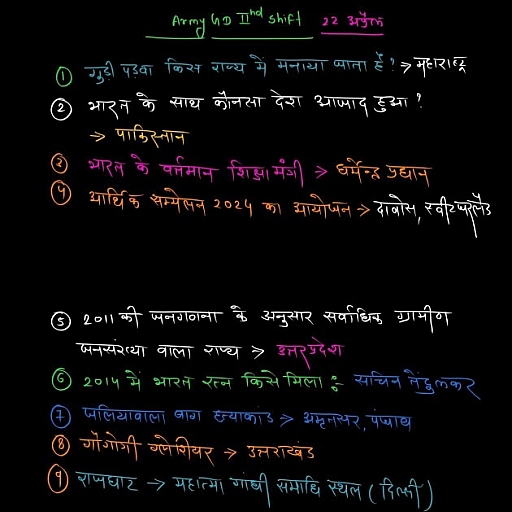 Army GD IInd shift 22 अप्रैल
① गुड़ी पड़वा किस राज्य में मनाया जाता है? → महाराष्ट्र
② भारत के साथ कौनसा देश आजाद हुआ?
→ पाकिस्तान
③ भारत के वर्तमान शिक्षा मंत्री → धर्मेन्द्र प्रधान
④ आर्थिक सम्मेलन 2024 का आयोजन → दावोस, स्वीटजरलैंड
⑤ 2011 की जनगणना के अनुसार सर्वाधिक ग्रामीण
जनसंख्या वाला राज्य → उत्तरप्रदेश
⑥ 2014 में भारत रत्न किसे मिला :- सचिन तेंदुलकर
⑦ जलियावाला बाग हत्याकांड → अमृतसर, पंजाब
⑧ गौंगोगी ग्लेशियर → उत्तराखंड
⑨ राजघाट → महात्मा गांधी समाधि स्थल (दिल्ली)